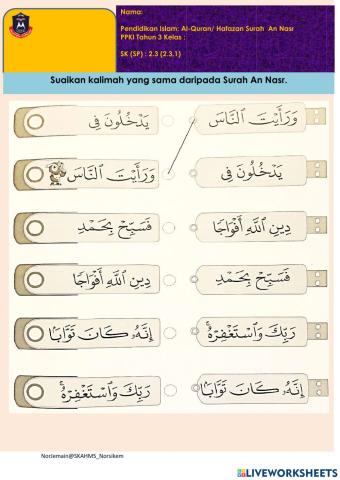 Nama:
Pendidikan Islam: Al-Quran/ Hafazan Surah An Nasr
PPKI Tahun 3 Kelas :
SK (SP) : 2.3 (2.3.1)
Suaikan kalimah yang sama daripada Surah An Nasr.
يَدْخُلُونَ فِى
وَرَأَيْتَ ٱلنَّاسَ
وَرَأَيْتَ ٱلنَّاسَ
يَدْخُلُونَ فِى
فَسَبِّحْ بِحَمْدِ
دِينِ ٱللَّهِ أَفْوَاجًا
دِينِ ٱللَّهِ أَفْوَاجًا
فَسَبِّحْ بِحَمْدِ
إِنَّهُۥ كَانَ تَوَّابًا
رَبِّكَ وَٱسْتَغْفِرْهُ ۚ
رَبِّكَ وَٱسْتَغْفِرْهُ ۚ
إِنَّهُۥ كَانَ تَوَّابًا
Notiemain@SKAHMS_Norsikem
LIVEWORKSHEETS